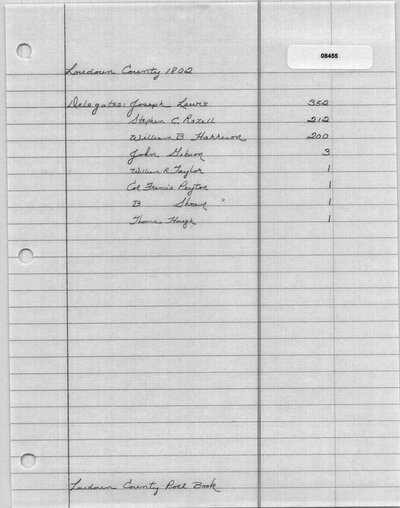 08455
Loudoun County 1802
Delegates: Joseph Lewis 352
Stephen C. Rozell 212
William B Harrison 200
John Gibson 3
William R Taylor 1
Col Francis Peyton 1
B Shreve 1
Thomas Hough 1
Loudoun County Poll Book